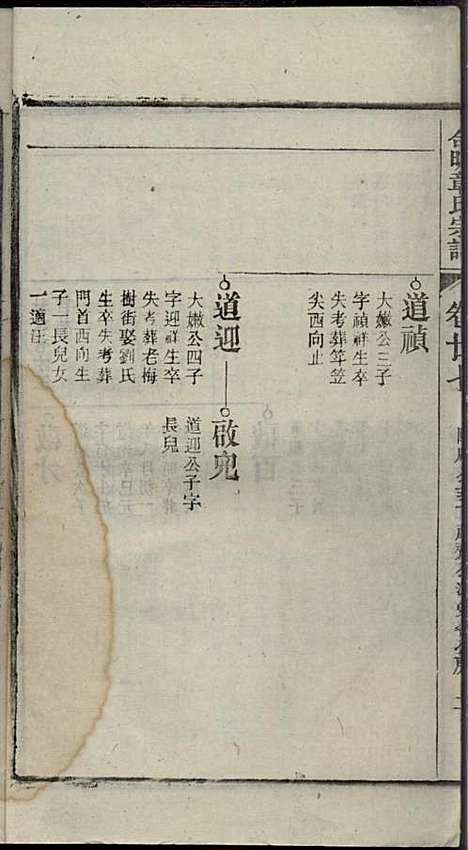 章氏宗譜
卷廿七
道禎
大嫩公三子
字禎祥生卒
失考葬笄笠
尖西向止
道迎
大嫩公四子
字迎祥生卒
失考葬老梅
樹街娶劉氏
生卒失考葬
門首西向生
子一長兒女
一適汪
啟兒
道迎公子字
長兒